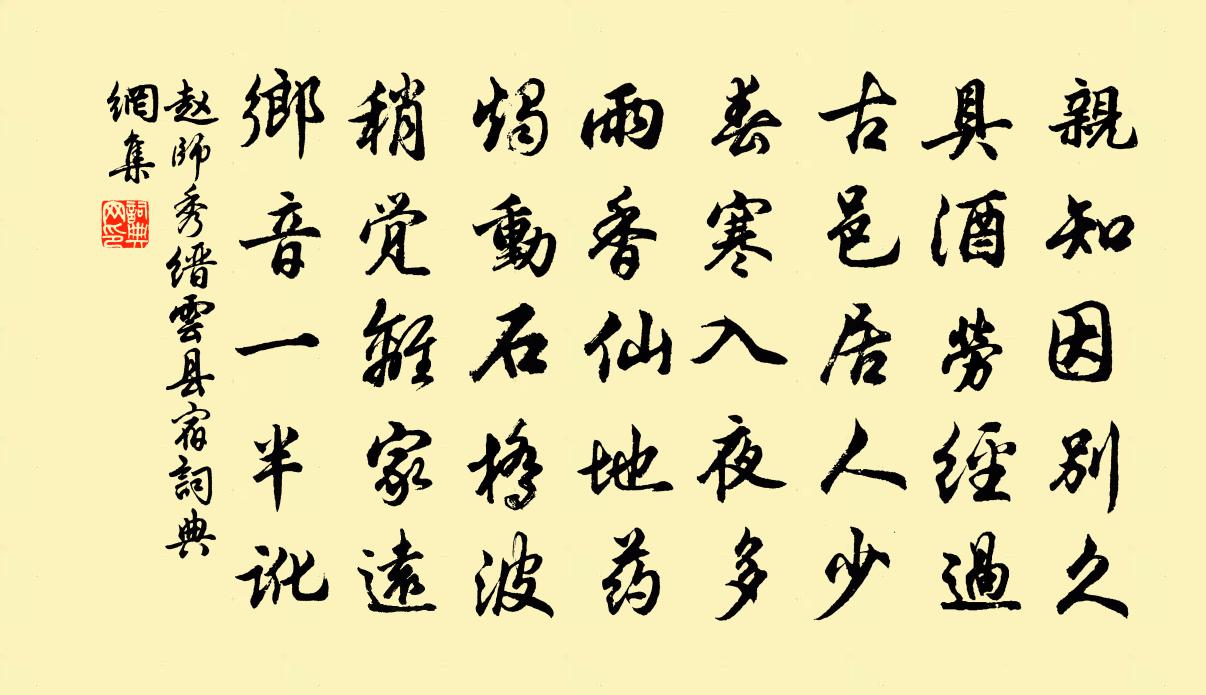 親知因别久
具酒勞經過
古邑居人少
春寒入夜多
雨香仙地药
燭動石橋波
稍觉離家遠
鄉音一半訛
赵師秀缙雲县宿詞典
網集
詞典
网印